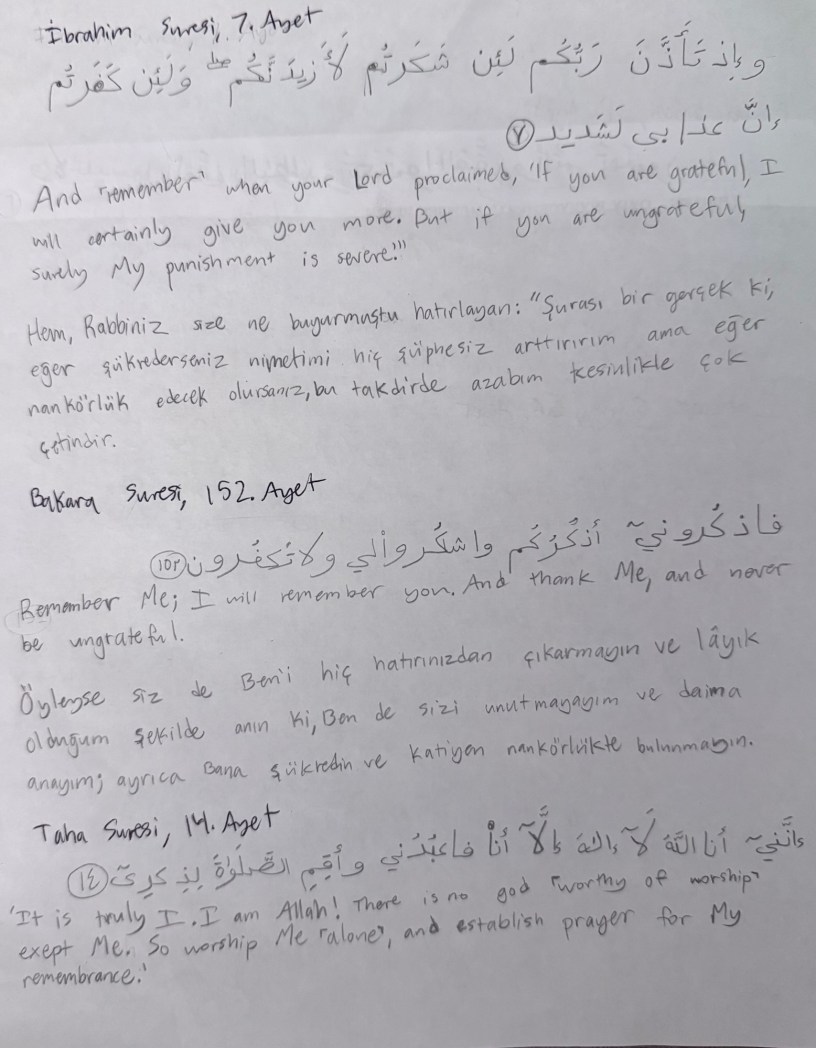 İbrahim Suresi, 7. Ayet
وَإِذ تَأَذَّنَ رَبُّكُم لَئِن شَكَرتُم لَأَزِيدَنَّكُم ۖ وَلَئِن كَفَرتُم
إِنَّ عذابي لَشَديد ٧
And 'remember' when your Lord proclaimed, 'If you are grateful, I
will certainly give you more. But if you are ungrateful,
surely My punishment is severe.'"
Hem, Rabbiniz size ne buyurmuştu hatırlayan: "Şurası bir gerçek ki,
eğer şükrederseniz nimetimi hiç şüphesiz arttırırım ama eğer
nankörlük edecek olursanız, bu takdirde azabım kesinlikle çok
çetindir.
Bakara Suresi, 152. Ayet
فاذكُرونيٓ أذكُركُم واشكُروألي ولاتكفُرون ١٥٢
Remember Me; I will remember you. And thank Me, and never
be ungrateful.
Öyleyse siz de Ben'i hiç hatırınızdan çıkarmayın ve lâyık
olduğum şekilde anın ki, Ben de sizi unutmayayım ve daima
anayım; ayrıca Bana şükredin ve katiyen nankörlükte bulunmayın.
Taha Suresi, 14. Ayet
إنَّنيٓ أنا اللّهُ لَآ إلهَ إلَّآ أنا۠ فاعبُدني وأقِمِ الصَّلَوٰةَ لِذِكرِيٓ ١٤
'It is truly I. I am Allah! There is no god 'worthy of worship'
exept Me. So worship Me 'alone', and establish prayer for My
remembrance.'